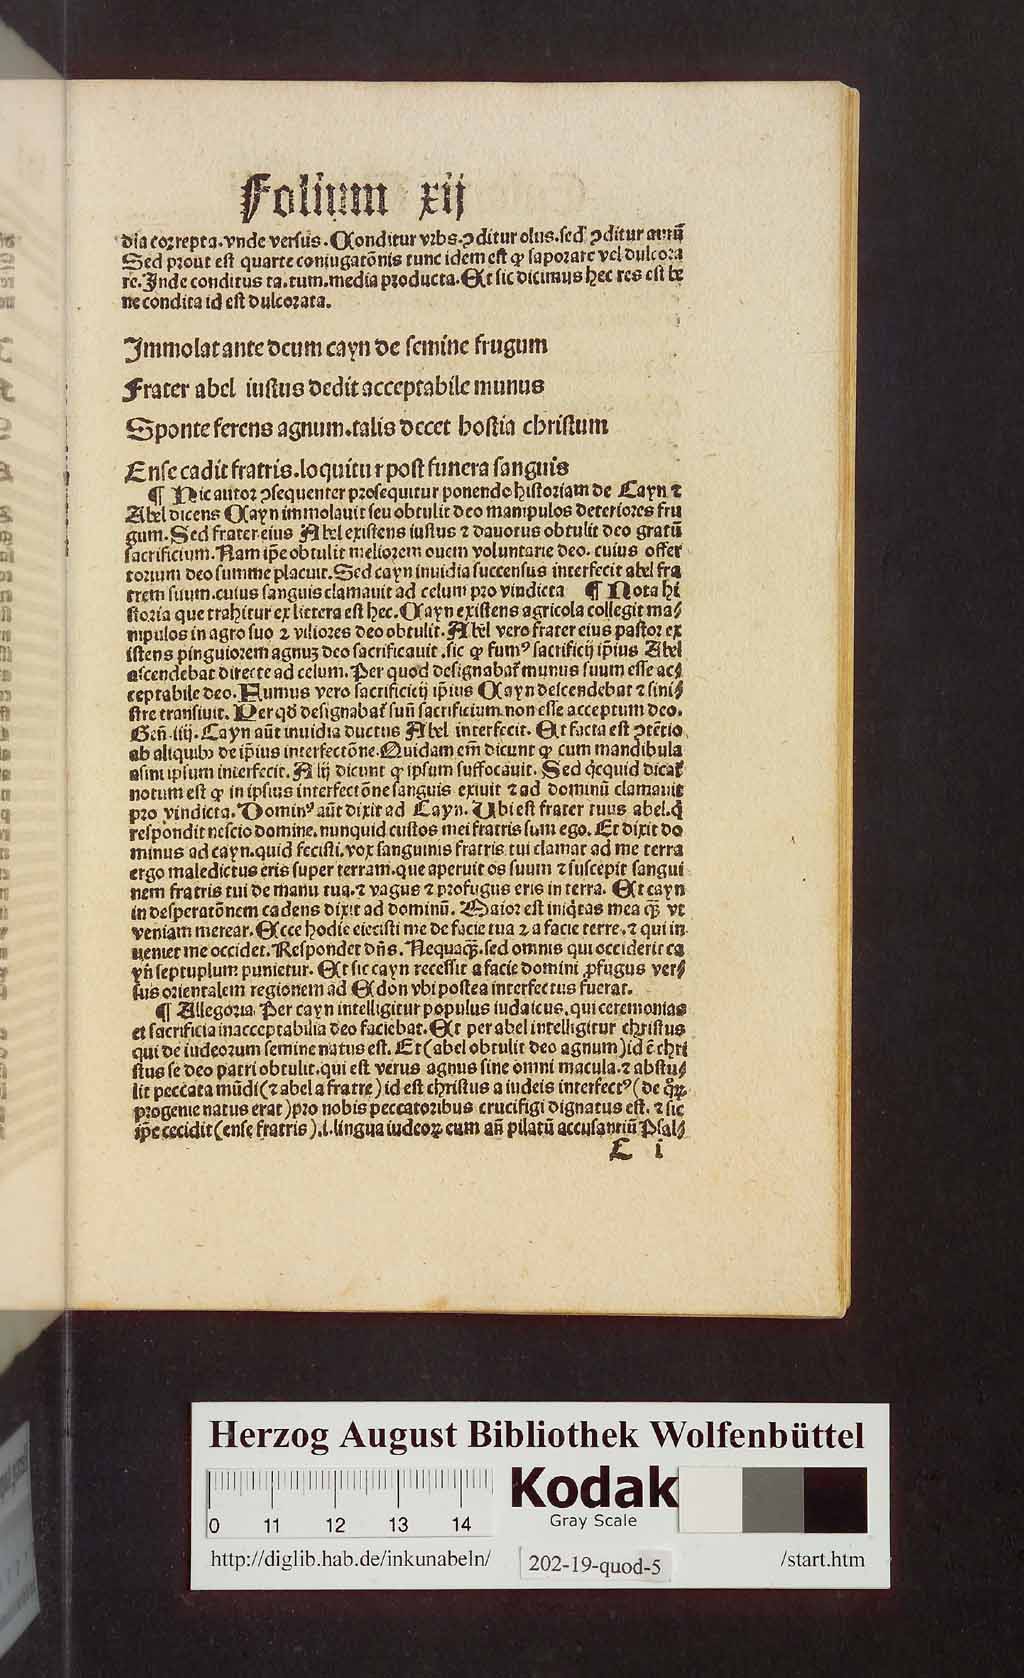 Folium xij
dia correpta.vnde versus.Conditur vrbs.ꝯditur olus.sed ꝯditur aurū
Sed prout est quarte coniugatōnis tunc idem est ꝙ saporare vel dulcora
re.Inde conditus ta.tum.media producta.Et sic dicimus hec res est be
ne condita id est dulcorata.
Immolat ante deum cayn de semine frugum
Frater abel iustus dedit acceptabile munus
Sponte ferens agnum.talis decet hostia christum
Ense cadit fratris.loquitur post funera sanguis
¶ Hic autor ꝯsequenter prosequitur ponendo historiam de Cayn ⁊
Abel dicens Cayn immolauit seu obtulit deo manipulos deteriores fru
gum.Sed frater eius Abel existens iustus ⁊ dauotus obtulit deo gratū
sacrificium.Nam ip̄e obtulit meliorem ouem voluntarie deo.cuius offer
torium deo summe placuit.Sed cayn inuidia succensus interfecit abel fra
trem suum.cuius sanguis clamauit ad celum pro vindicta ¶ Nota hi
storia que trahitur ex littera est hec.Cayn existens agricola collegit ma⸗
nipulos in agro suo ⁊ viliores deo obtulit.Abel vero frater eius pastor ex
istens pinguiorem agnuʒ deo sacrificauit.sic ꝙ fumꝰ sacrificij ip̄ius Abel
ascendebat directe ad celum.Per quod designabat᷑ munus suum esse ac⸗
ceptabile deo.Fumus vero sacrificicij ip̄ius Cayn descendebat ⁊ sini⸗
stre transiuit.Per qd̄ designabat᷑ suū sacrificium non esse acceptum deo.
Gen̄.iiij.Cayn aūt inuidia ductus Abel interfecit.Et facta est ꝯtētio
ab aliquibꝫ de ip̄ius interfectōne.Quidam em̄ dicunt ꝙ cum mandibula
asini ipsum interfecit.Alij dicunt ꝙ ipsum suffocauit.Sed qͥcquid dicat᷑
notum est ꝙ in ipsius interfectōne sanguis exiuit ⁊ ad dominū clamauit
pro vindicta.Dominꝰ aūt dixit ad Cayn.Vbi est frater tuus abel.qͥ
respondit nescio domine.nunquid custos mei fratris sum ego.Et dixit do
minus ad cayn.quid fecisti.vox sanguinis fratris tui clamat ad me terra
ergo maledictus eris super terram.que aperuit os suum ⁊ suscepit sangui
nem fratris tui de manu tua.⁊ vagus ⁊ profugus eris in terra.Et cayn
in desperatōnem cadens dixit ad dominū.Maior est iniqͥtas mea qꝫ̄ vt
veniam merear.Ecce hodie eiecisti me de facie tua ⁊ a facie terre.⁊ qui in
uenier me occidet.Respondet dn̄s.Nequaqꝫ̄.sed omnis qui occiderit ca
yn̄ septuplum punietur.Et sic cayn recessit a facie domini ꝓfugus ver⸗
sus orientalem regionem ad Edon vbi postea interfectus fuerat.
¶ Allegoria Per cayn intelligitur populus iudaicus.qui ceremonias
et sacrificia inacceptabilia deo faciebat.Et per abel intelligitur christus
qui de iudeorum semine natus est.Et(abel obtulit deo agnum)id ē chri
stus se deo patri obtulit.qui est verus agnus sine omni macula.⁊ abstu⸗
lit peccata mūdi(⁊ abel a fratre)id est christus a iudeis interfectꝰ(de qͦꝝ
progenie natus erat)pro nobis peccatoribus crucifigi dignatus est.⁊ sic
ip̄e cecidit(ense fratris).i.lingua iudeoꝝ cum an̄ pilatū accusantiū Psal⸗
C i
Herzog August Bibliothek Wolfenbüttel
0 11 12 13 14
Kodak
Gray Scale
http://diglib.hab.de/inkunabeln/ 202-19-quod-5 /start.htm